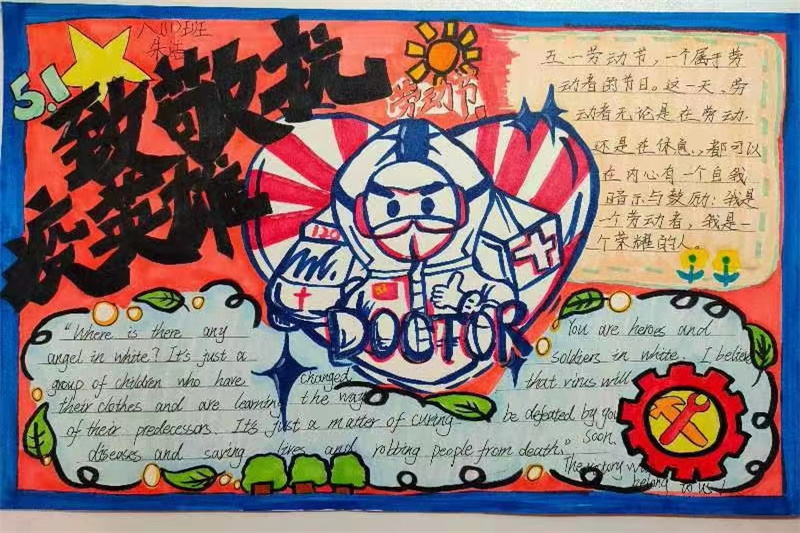 八(1)班
朱
5.1
致敬抗
疫英雄
劳动节
五一劳动节，一个属于劳
动者的节日。这一天，劳
动者无论是在劳动，
还是在休息，都可以
在内心有一个自我
暗示与鼓励：我是
一个劳动者，我是一
个荣耀的人。
120
DOCTOR
"Where is there any
angel in white? It's just a
group of children who have changed
their clothes and are learning the way
of their predecessors. It's just a matter of curing
diseases and saving lives and robbing people from death."
You are heroes and
soldiers in white. I believe
that virus will
be defeated by you
soon.
The victory
belong to us!